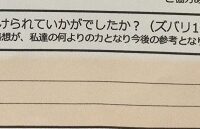 けられていかがでしたか？（ズバリ1
想が、私達の何よりの力となり今後の参考とな